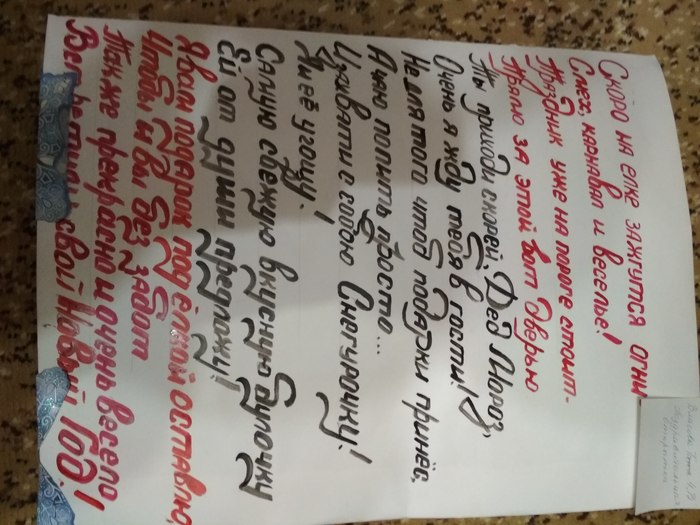 Скоро на елке зажгутся огни
Смех, карнавал и веселье!
Праздник уже на пороге стоит-
Прямо за этой вот дверью
Ты приходи скорей, Дед Мороз,
Очень я жду тебя в гости!
Не для того чтоб подарки принёс,
А чаю попить просто...
И захвати с собою Снегурочку!
Я и её угощу.
Самую свежую вкусную булочку
Ей от души предложу!
Я вам подарок под ёлкой оставлю,
Чтобы и Вы без забот
Так же прекрасно и очень весело
Встретили свой Новый Год!